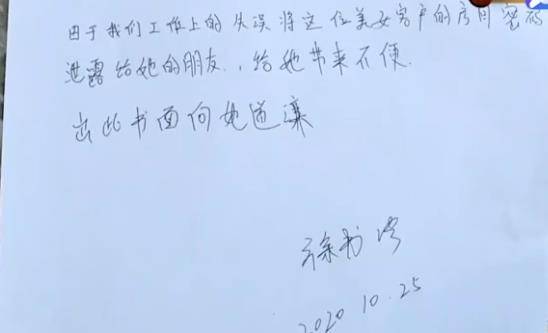 由于我们工作上的失误将这位美女客户的房间密码
泄露给她的朋友,,给她带来不便.
出此书面向她道歉
徐
2020 10.25